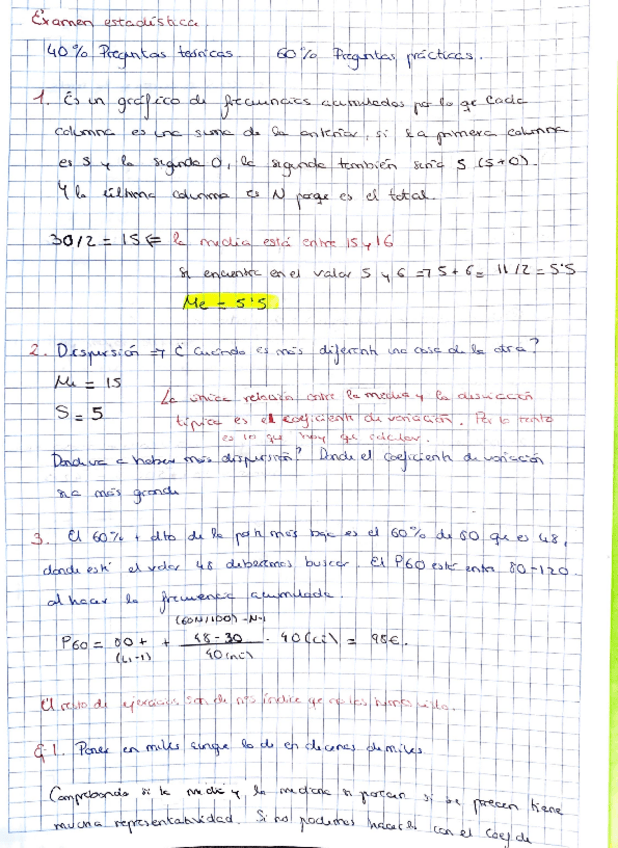 Examen estadística.
40% Preguntas teóricas. 60% Preguntas prácticas.
1. Es un gráfico de frecuencias acumuladas por lo qe cada
columna es una suma de la anterior, si la primera columna
es 5 y la segunda 0, la segunda también sería 5 (5+0).
Y la última columna es N porqe es el total.
30/2 = 15 ⇐ la media está entre 15 y 16
se encuentra en el valor 5 y 6 ⇒ 5+6= 11/2 = 5'5
Me = 5'5
2. Dispersión ⇒ ¿ Cuándo es más diferente una cosa de la otra?
= 15
S = 5
La única relación entre la media y la desviación
típica es el coeficiente de variación. Por lo tanto
es lo que hay qe calcular.
Donde va a haber más dispersión? Donde el coeficiente de variación
sea más grande
3. El 60% + alto de la parte más baja es el 60% de 80 que es 48,
donde esté el valor 48 deberemos buscar. El P60 está entre 80-120
al hacer la frecuencia acumulada.
(60N/100) -N-1
P60 = 80 + 48-30 · 40 (ci) = 98€.
(Li-1) 40 (ni)
El resto de ejercicios son de nºs índice qe no los hemos visto.
Ej 1. Poner en miles aunque lo de en decenas de miles.
Comprobando si la media y la mediana si parecen si se parecen tiene
mucha representatividad. Si no podemos hacerlo con el Coef de